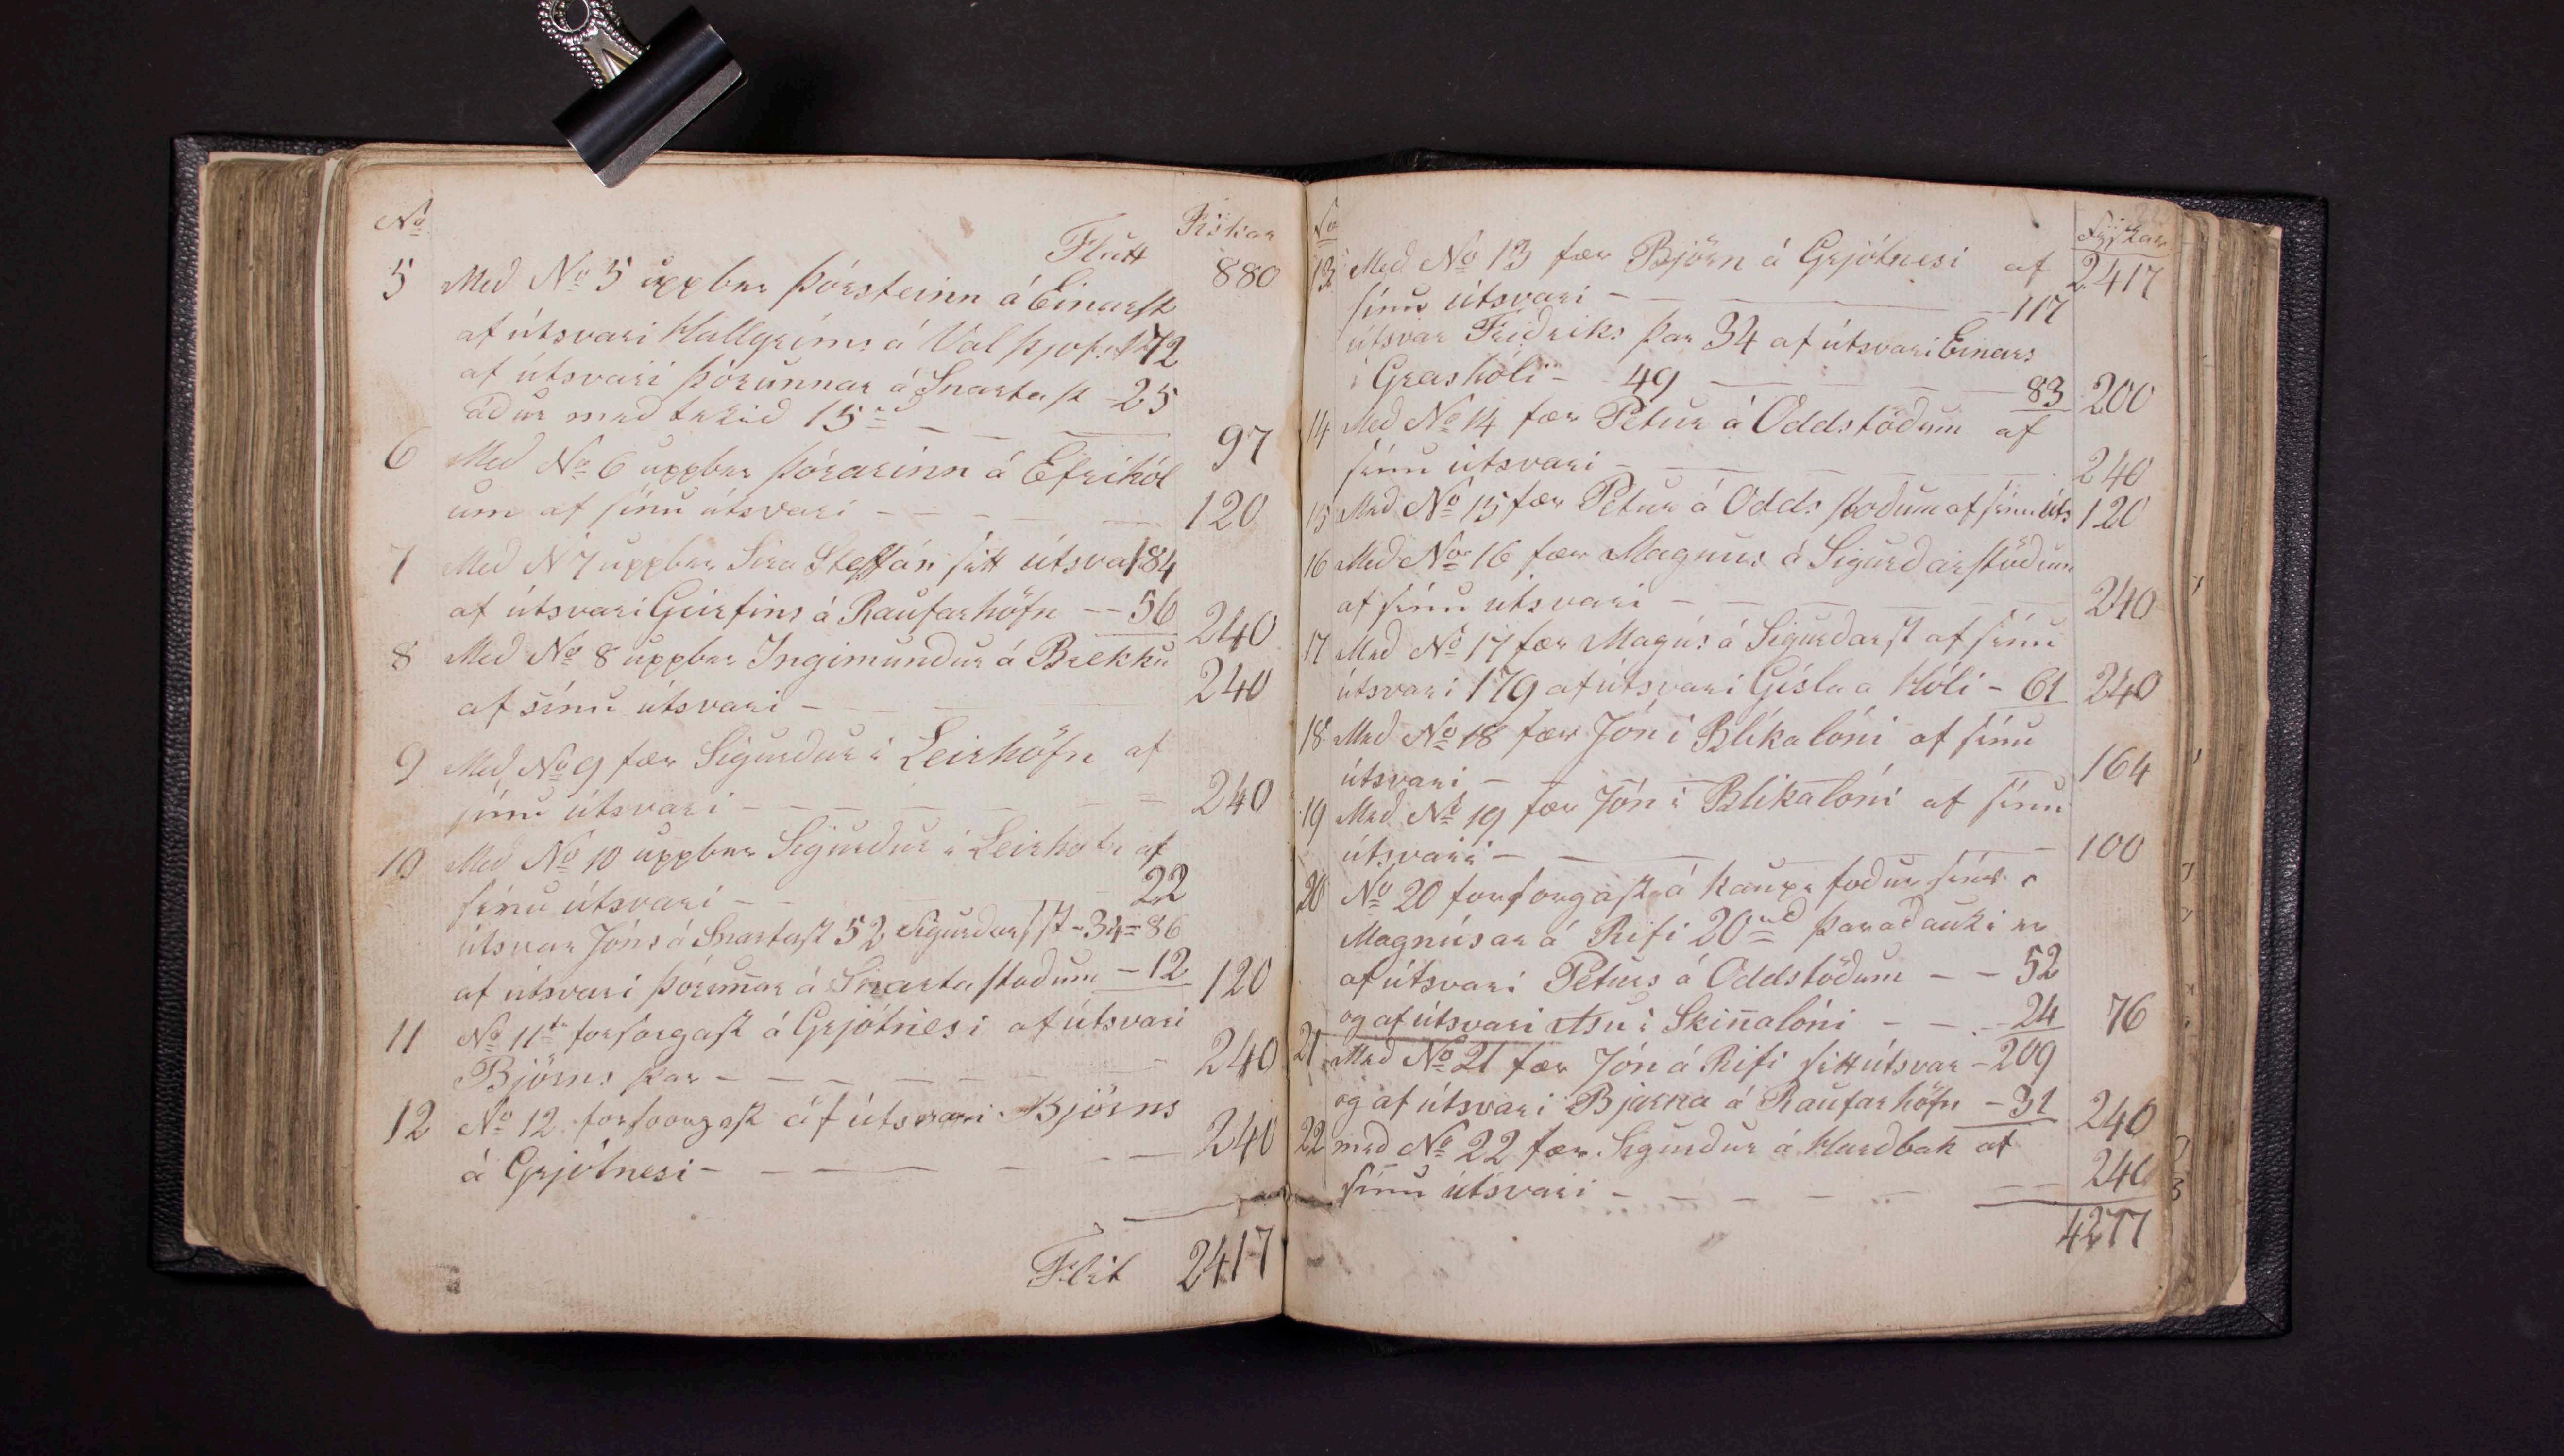 No Fiskar
Flutt 880
5 Með No 5 uppber Þórsteinn á Einarsst
af útsvari Hallgríms á Valþjofs 172
af útsvari Þórunnar á Snartast - 25
áður með tekið 15 97
6 Með No 6 uppber Þórarinn á Efrihól
um af sínu útsvari - - - 120
7 Með N 7 uppber Sira Steffán sitt útsva 184
af útsvari Geirfins á Raufarhöfn -- 56 240
8 Með No 8 uppber Ingimundur á Brekku
af sínu útsvari - 240
9 Með No 9 fær Sigurður i Leirhöfn af
sínu útsvari - - - 240
10 Með No 10 uppber Sigurður i Leirhofn af
sínu útsvari - - 22
útsvar Jóns á Snartast 52 Sigurðar sst - 34 = 86
af útsvari Þóruñar á Snartastoðum - 12 120
11 No 11ta forsorgast á Grjótnesi af útsvari
Björns þar - - - 240
12 No 12 forsoorgast af útsvari Björns
á Grjótnesi - - - 240
Flit 2417
No Fiskar
13 Með No 13 fær Björn á Grjótnesi af 2417
sínu útsvari - - 117
útsvar Friðriks þar 34 af útsvari Einars
i Grashóli - 49 - 83 200
14 Með No 14 fær Petur á Oddstöðum af
sínu útsvari - - - 240
15 Með No 15 fær Petur á Oddsstoðum af sínu úts 120
16 Með No 16 fær Magnus á Sigurðarstöðum
af sínu útsvari - - - 240
17 Með No 17 fær Magús á Sigurðarst af sínu
útsvari 179 af útsvari Gísla a Hóli - 61 240
18 Með No 18 fær Jón i Blikalóni af sínu
útsvari - - - 164
19 Með No 19 fær Jón i Blikalóni af sínu
útsvari - - - 100
20 No 20 forsorgast á kaupi foður síns
Magnúsar á Rifi 20 þaraðauki er
af útsvari Peturs á Oddstöðum - - 52
og af útsvari Asu i Skiñalóni - - - 24 76
21 Með No 21 fær Jón á Rifi sitt útsvar - 209
og af útsvari Bjarna á Raufarhöfn - 31 240
22 með No 22 fær Sigurður á Harðbak af
sínu útsvari - - - 240
4277